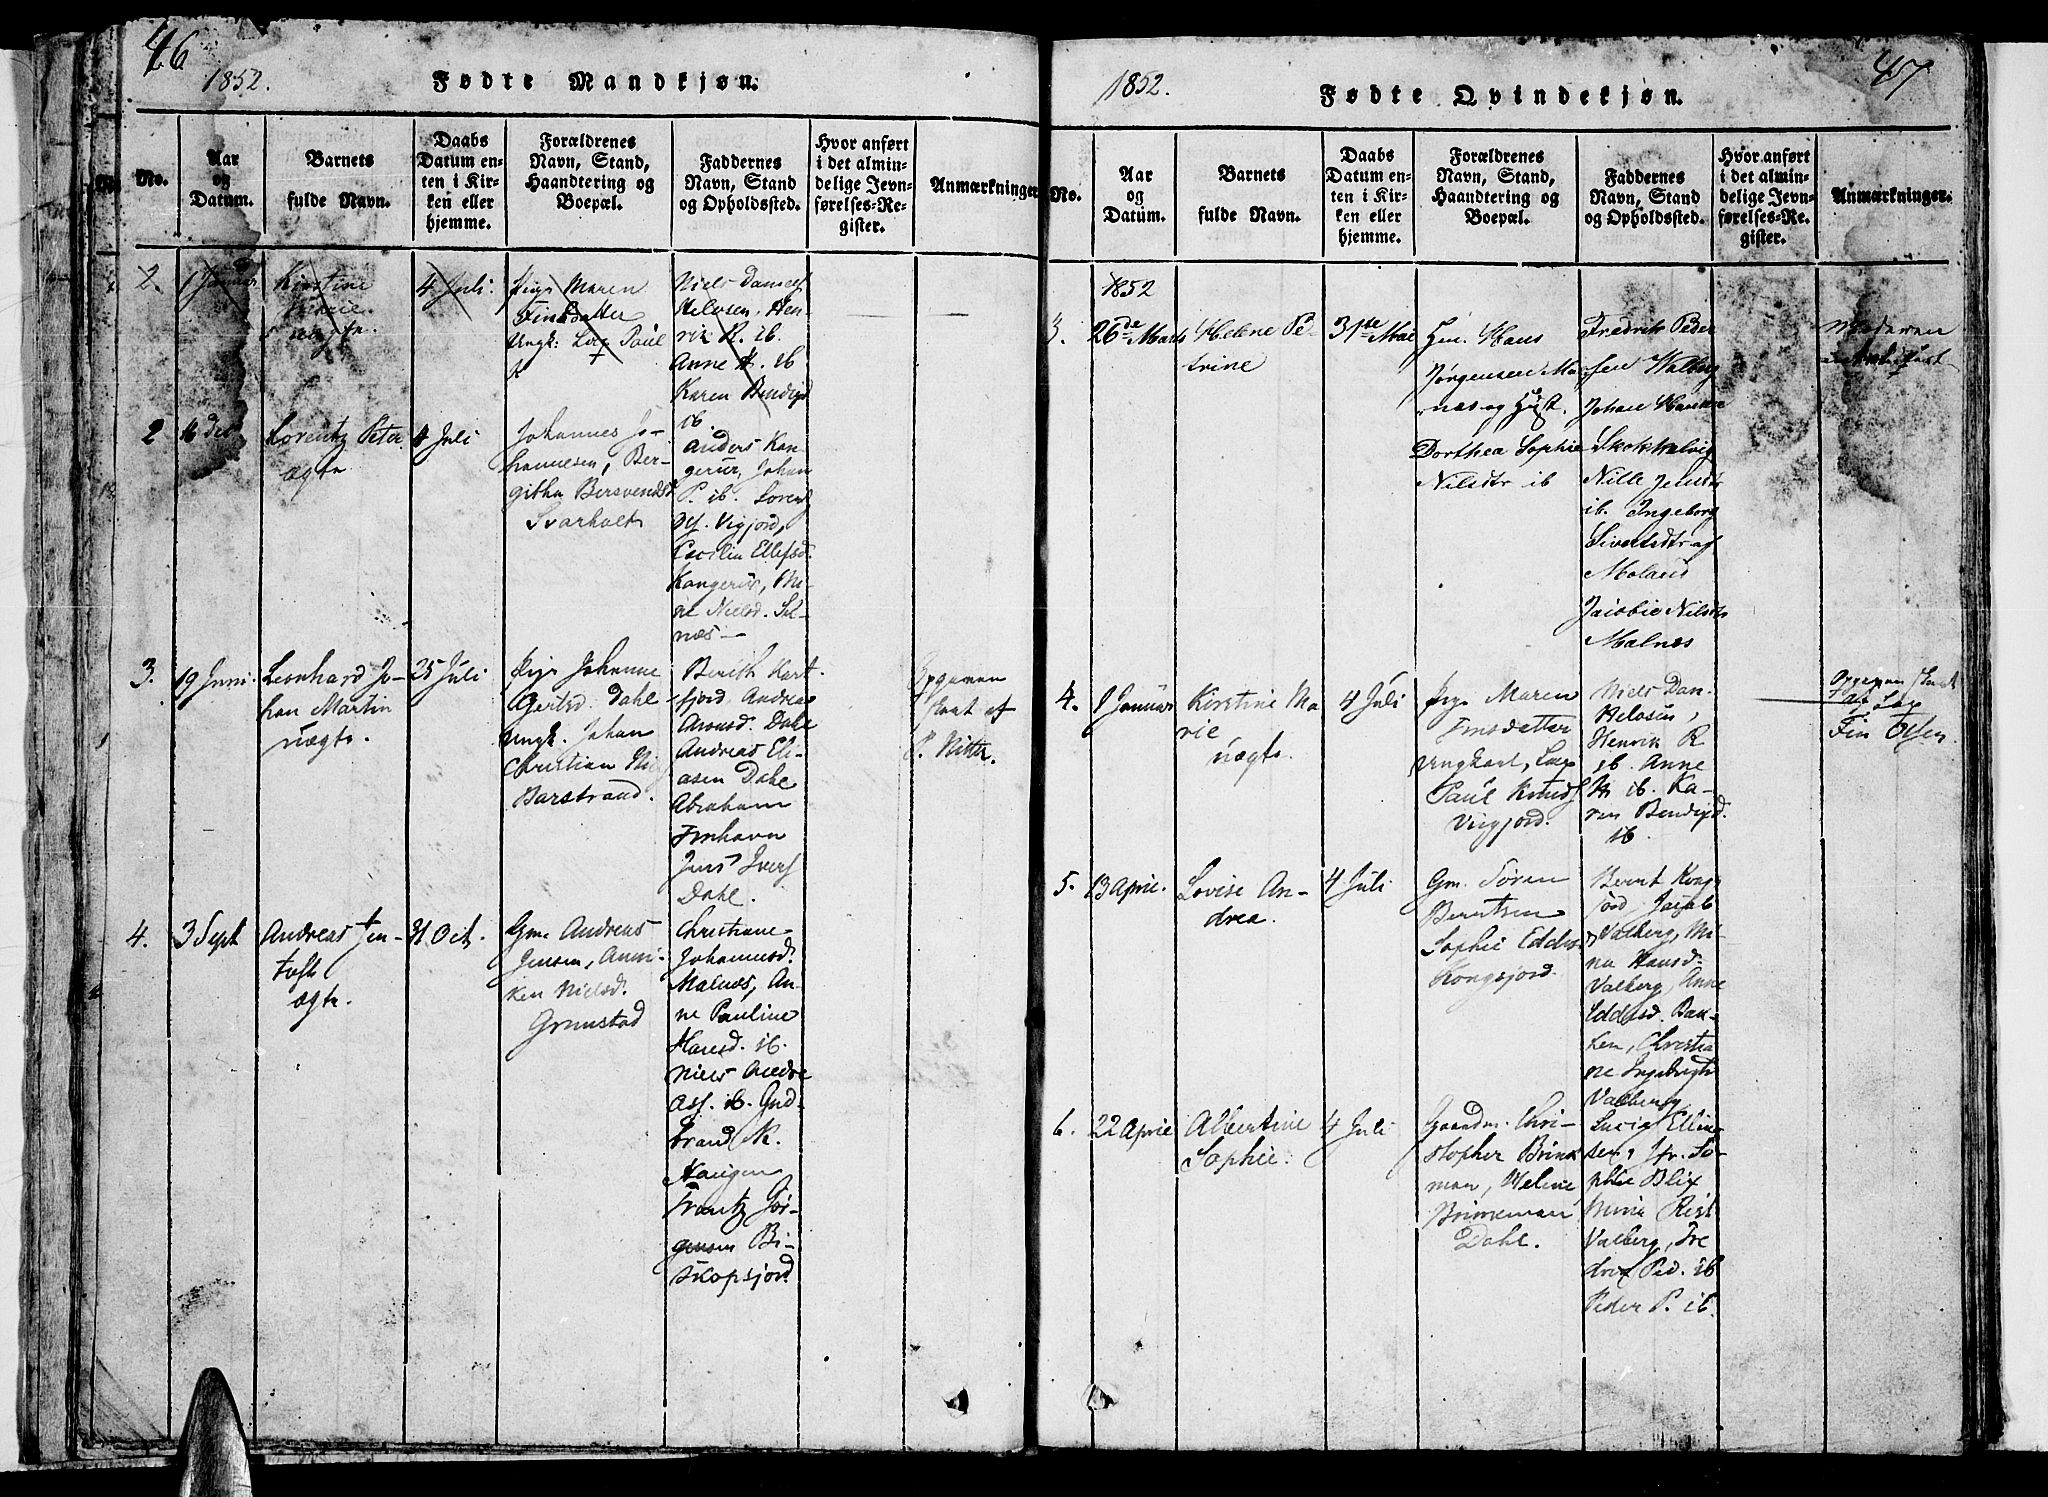 46
1852.
Fødte Mandkjøn.
No.
Aar
og
Datum.
Barnets
fulde Navn.
Daabs
Datum en-
ten i Kir-
ken eller
hjemme.
Forældrenes
Navn, Stand,
Haandtering og
Boepæl.
Faddernes
Navn, Stand
og Opholdssted.
Hvor anført
i det almin-
delige Jevn-
førelses-Re-
gister.
Anmærkninger
2.
1 Januar
Kirstine
Marie
uægte.
4 Juli.
Pige Maren
Finsdatter
Ungk: Lars Paul
K
Niels Daniels
Helosen, Hen-
rik R. ib.
Anne H. ib
Karen Bendigd
ib.
2
16 Dec
Lorentz Peter
ægte
4 Juli
Johannes Jo-
hannesen, Ber-
githa Bersvends
Svarholt
Anders Kan-
gerur, Johan
P. ib. Lorents
Vigjord,
Cecilia Ellefsd.
Kangerur, Mi-
ne Nielsd. Sel-
næs
3.
19 Juni.
Leonhard Jo-
han Martin
uægte.
25 Juli
Pige Johanne
Gertsd. Dahl
Ungk. Johan
Christian
Barstrand.
Berith Hart-
fjord, Andreas
Dahl
Andreas Eli-
asen Dahl
Abraham
Finhavn
Jens Ivers
Dahl.
Opgaven
skat af
P. Ritter.
4.
3 Sept
Andreas Jen-
toft
ægte.
31 Oct.
Gm. Andreas
Jensen, Anni-
ken Nielsd.
Grunstad
Christiane
Johannesd.
Malnæs, An-
ne Pauline
Hansd. ib.
Niels Andre-
asf. ib. Gud-
brand K.
Haugen
Frantz Jør-
gensen Bi-
skopsjord
47
1852.
Fødte Qvindekjøn.
No.
Aar
og
Datum.
Barnets
fulde Navn.
Daabs
Datum en-
ten i Kir-
ken eller
hjemme.
Forældrenes
Navn, Stand,
Haandtering og
Boepæl.
Faddernes
Navn, Stand
og Opholdssted.
Hvor anført
i det almin-
delige Jevn-
førelses-Re-
gister.
Anmærkninger.
1852
3.
26de Marts
Helene Pe-
trine
31te Mai
Gm. Hans
Jørgensen Ma-
næs og Hust.
Dorthea Sophie
Nilsdtr ib
Fredrik Peder
sen Walberg
Johan Hansen
Skokkelvig
Nille Jensdtr
ib. Ingeborg
Sivertsdtr af
Molund
Jacobie Nilsdtr
Malnæs
4.
1 Januar
Kirstine Ma
rie
uægte.
4 Juli
Pige Maren
Finsdatter
Ungkarl, Lars
Paul Knuds
Vigjord.
Niels Dan-
Helosen,
Henrik R
ib. Anne
H ib. Ka-
ren Bendigd.
ib.
Opgaven skat
af Lars
Fin Olsen.
5.
13 April.
Lovise An-
drea.
4 Juli
Gm. Søren
Berntsen
Sophie Eddis
Kongsjord.
Bernt Kong-
jord, Jacob
Valberg, Mi-
na Hansd.
Valberg, Anne
Eddisd. Bak-
ken, Christia
ne Ingebrigts
Valberg
6.
22 April
Albertine
Sophie.
4 Juli
Gaardm. Chri-
stopher Brink
man, Heline
Brinkman
Dahl.
Lucia Ellings
sen, Jfr. So-
phie Blix
Mina Rist
Valberg, Fre
drik Ped. ib
Peder P. ib.